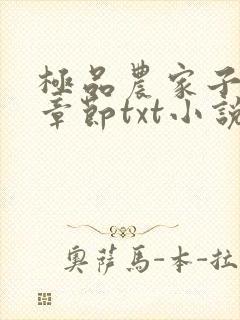 極品農家子
章節txt小說
奧薩馬-本-拉